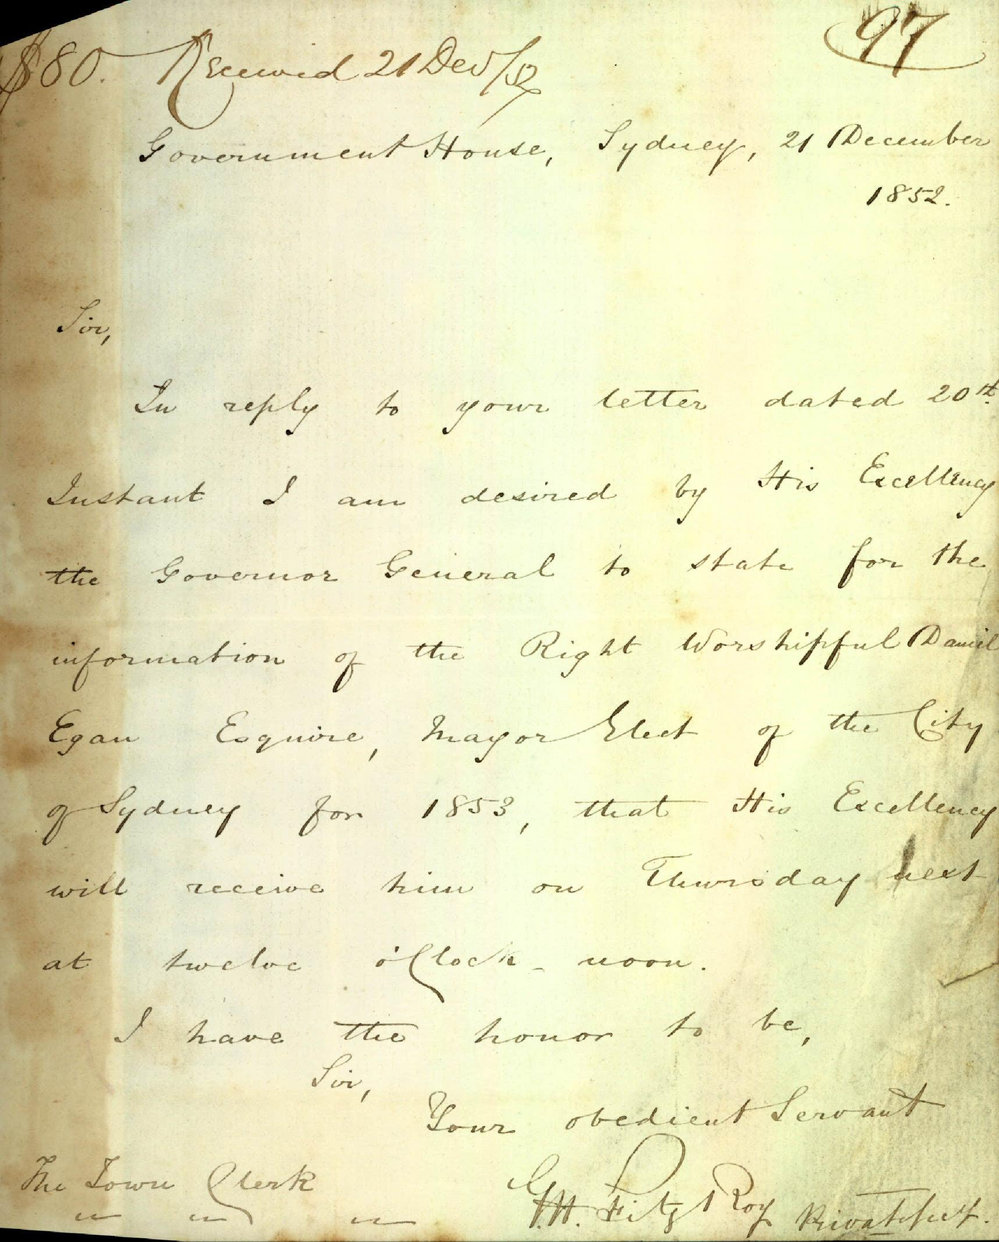 880. Received 21 Dec/52
97
Government House, Sydney, 21 December
1852.
Sir,
In reply to your letter dated 20th.
Instant I am desired by His Excellency
the Governor General to state for the
information of the Right Worshipful Daniel
Egan Esquire, Mayor Elect of the City
of Sydney for 1853, that His Excellency
will receive him on Thursday next
at twelve o'Clock - noon.
I have the honor to be,
Sir,
Your obedient Servant
The Town Clerk
G.H. FitzRoy